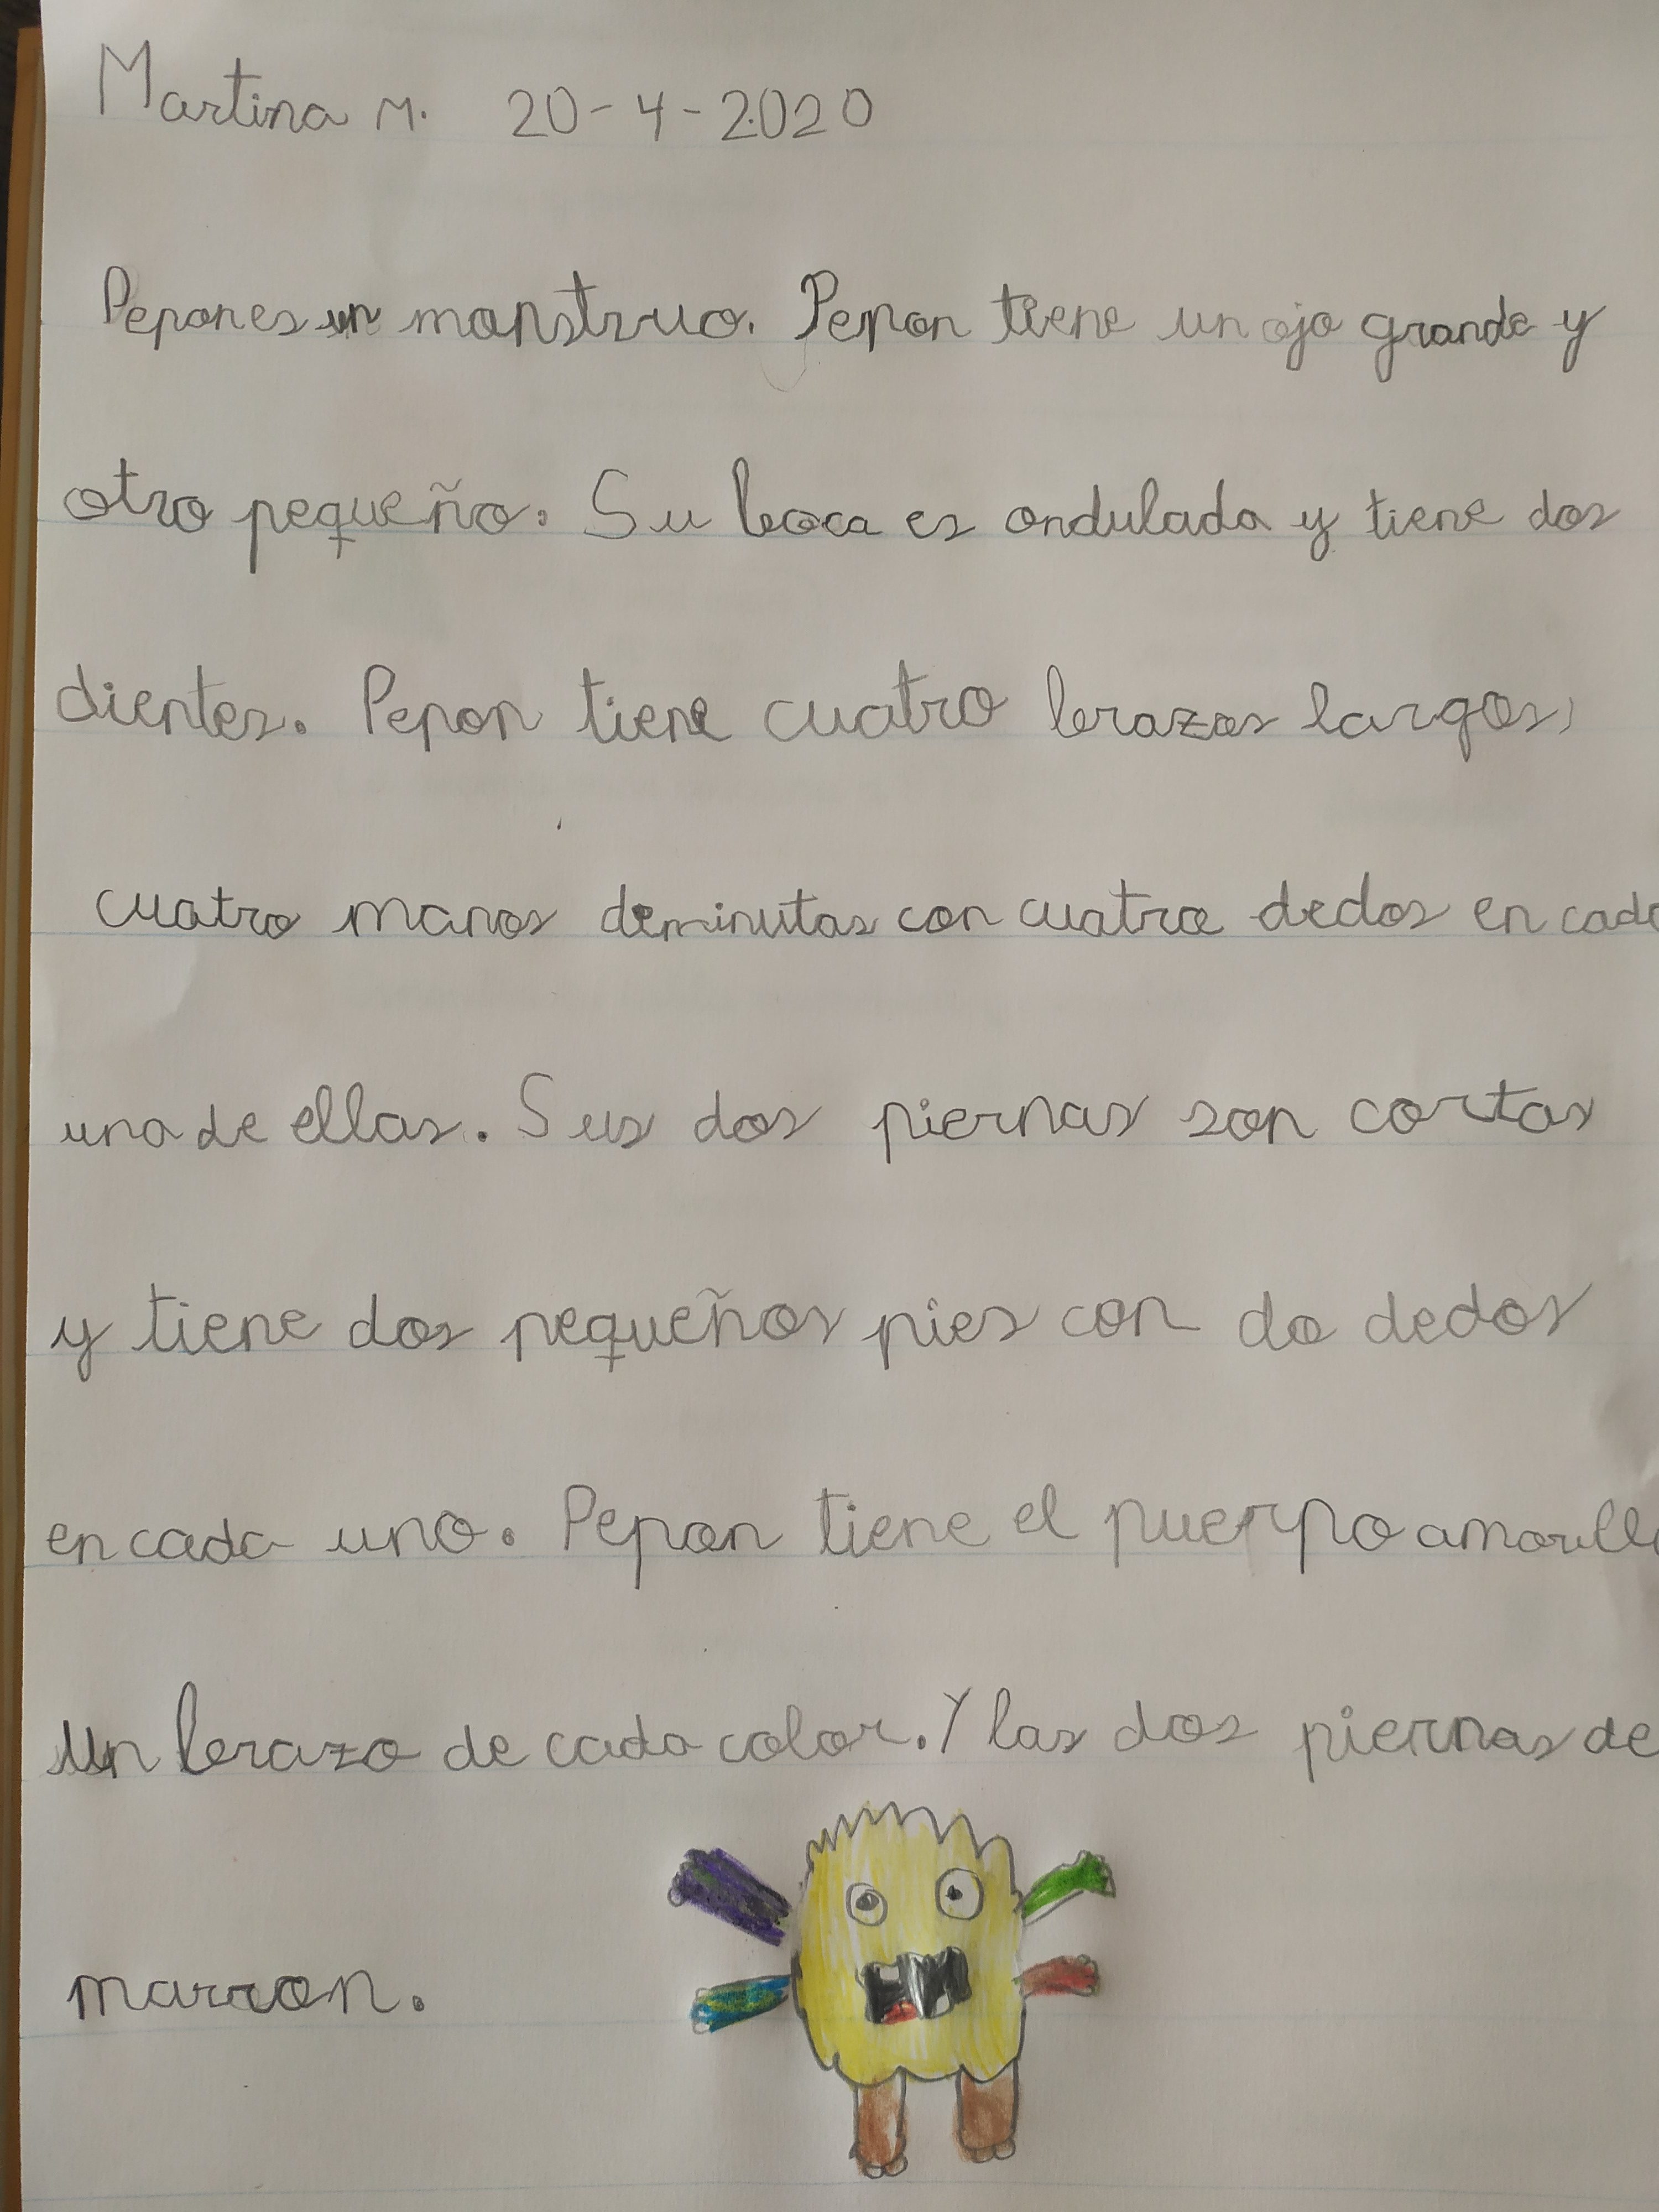 Martina M. 20-4-2020
Pepon es un monstruo. Pepon tiene un ojo grande y
otro pequeño. Su boca es ondulada y tiene dos
dientes. Pepon tiene cuatro brazos largos,
cuatro manos deminutas con cuatro dedos en cada
una de ellas. Sus dos piernas son cortas
y tiene dos pequeños pies con do dedos
en cada uno. Pepon tiene el puerpo amarillo
Un brazo de cada color. Y las dos piernas de
marron.